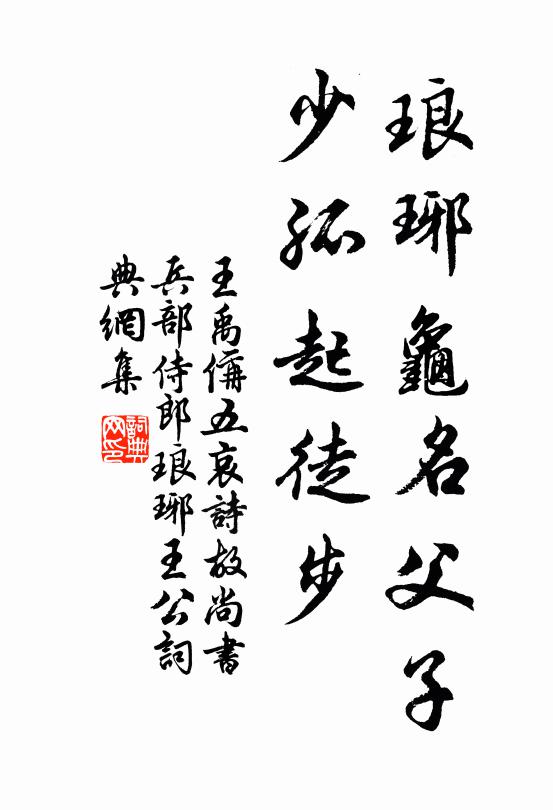 琅琊龜名父子
少孤起徒步
王禹偁五哀詩故尚書
兵部侍郎琅琊王公詞
典網集
詞典網印